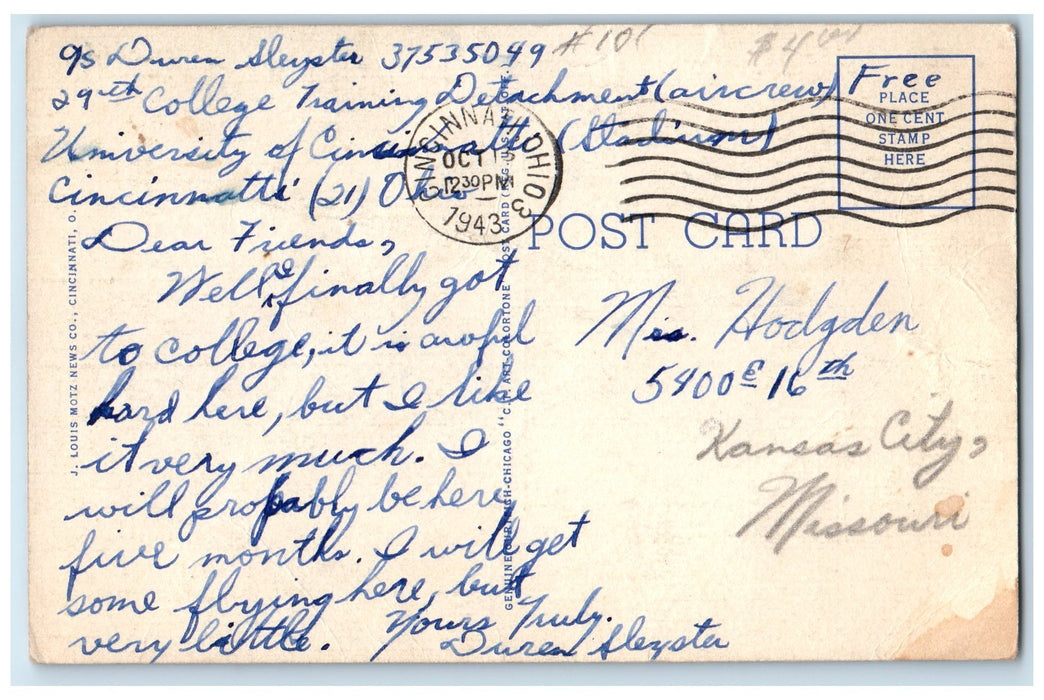 A/S Duren Sleyster 37535049 #10
29th College Training Detachment (aircrew)
University of Cincinnatti (Stadium)
Cincinnatti (21) Ohio
Dear Friends,
Well I finally got
to college, it is awful
hard here, but I like
it very much. I
will probably be here
five months. I will get
some flying here, but
very little. Yours Truly.
Duren Sleyster
$4.00
Free
PLACE
ONE CENT
STAMP
HERE
CINCINNATI, OHIO 3
OCT
12 30 PM
1943
POST CARD
Hodgden
5400 E 16th
Kansas City,
Missouri
J. LOUIS MOTZ NEWS CO., CINCINNATI, O.
GENUINE CURTEICH-CHICAGO "C.T. ART-COLORTONE" POST CARD